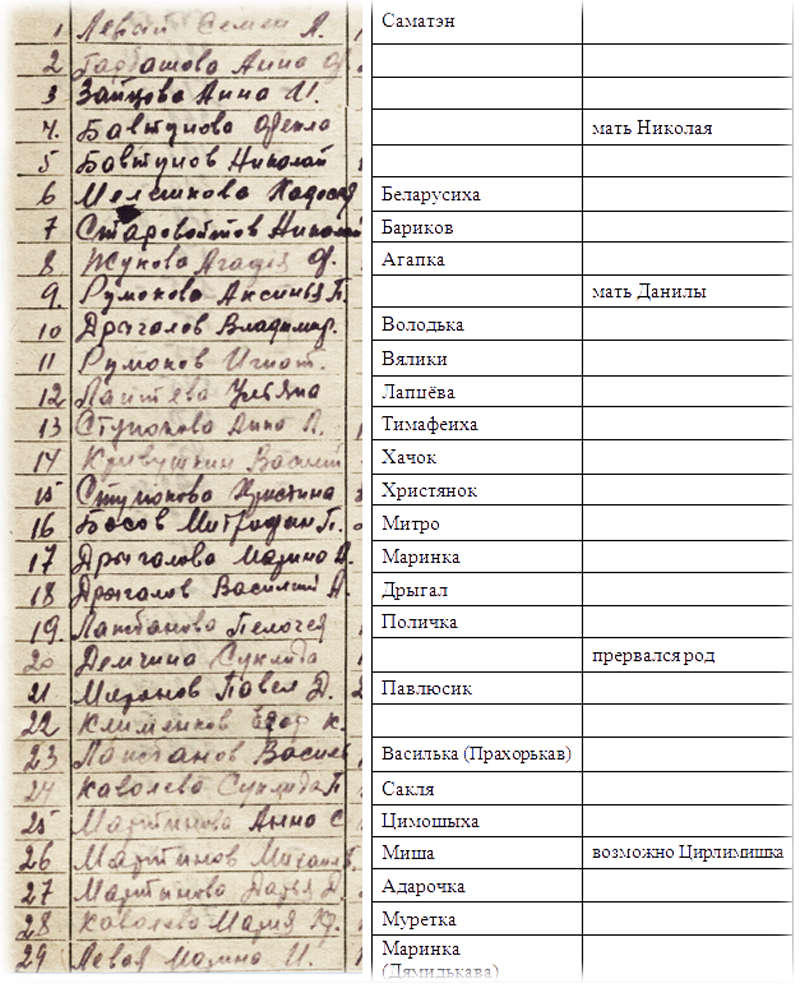 1 Левай Семен Л. Саматэн
2 Гарбашова Анна Ф.
3 Зайцова Анна И.
4. Бавтунова Фекла мать Николая
5 Бавтунов Николай
6 Мелешкова Беларусиха
7 Старовойтов Николай Бариков
8. Жукова Агафия Ф. Агапка
9. Румокова Аксинья П. мать Данилы
10 Дрыгалов Владимир. Володька
11 Румоков Игнат. Вялики
12 Лаптева Ульяна Лапцёва
13 Ступокова Анна Л. Тимафеиха
14 Кривушкин Василий Хачок
15 Ступокова Христина Христянок
16 Босов Митрофан П. Митро
17 Дрыгалова Марина Маринка
18 Дрыгалов Василий А. Дрыгал
19. Лакбанова Пелогея Поличка
20 Демчина Суклида прервался род
21 Миронов Павел Д. Павлюсик
22 Клименков Егор К.
23 Василька (Прахорькав)
24 Ковалева Суклида П Сакля
25 Мартинова Анна С Цимошыха
26 Мартинов Михаил Миша возможно Цирлимишка
27 Мартынова Дарья Д. Адарочка
28 Ковалева Мария Муретка
29 Левая Марина И. Маринка
(Дямидькава)